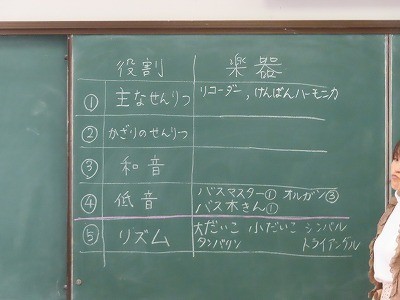 役割 楽器
① 主なせんりつ リコーダー, けんばんハーモニカ
② かざりのせんりつ
③ 和音
④ 低音 バスマスター① オルガン③
バス木きん①
⑤ リズム 大だいこ 小だいこ シンバル
タンバリン トライアングル